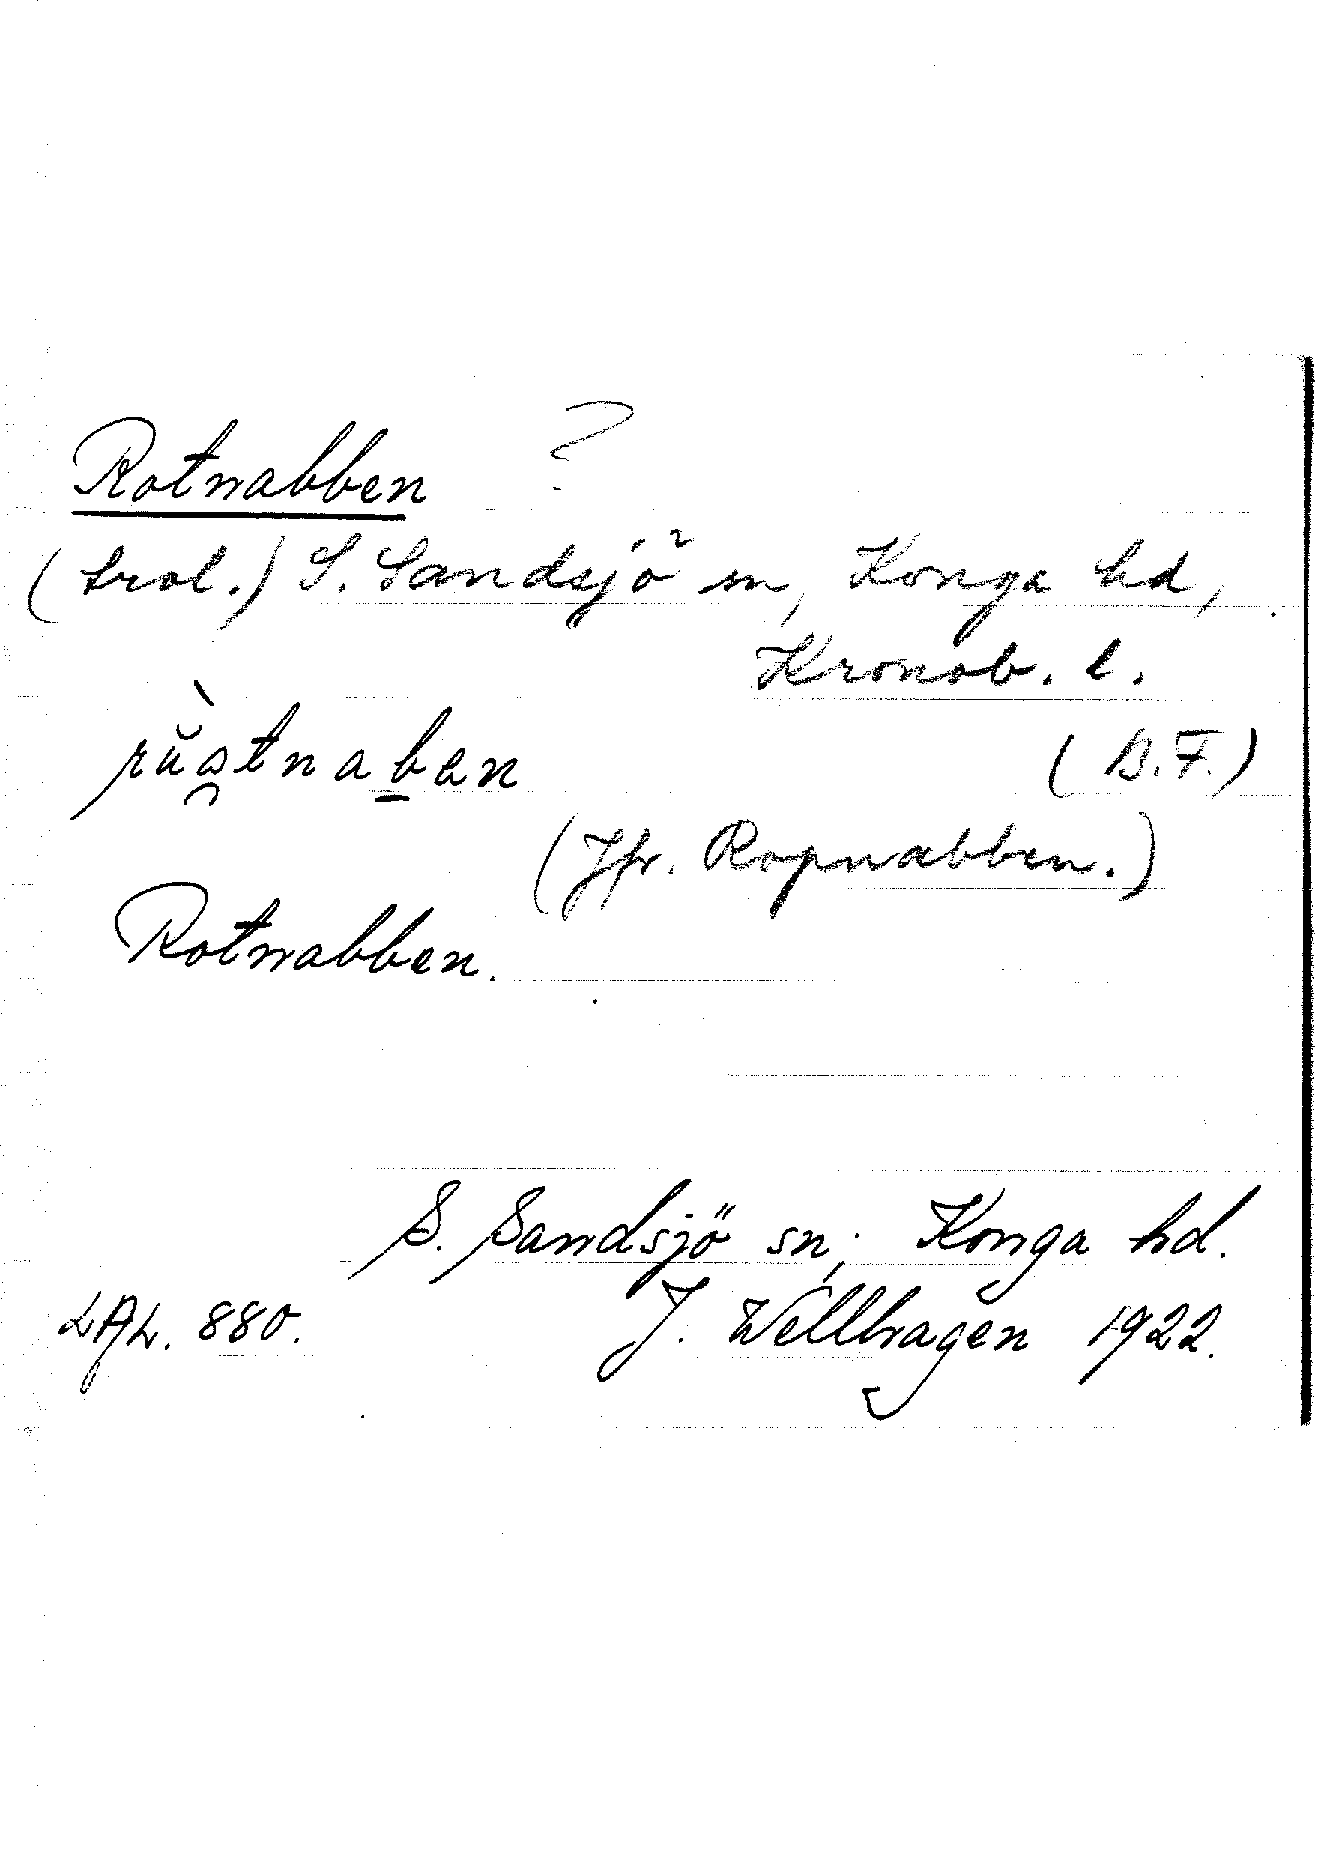 Rotnabben ?
(trol.) S. Sandsjö sn, Konga hd,
Kronob. l.
rŭətnaben (B.F.)
(Jfr. Ropnabben.)
Rotnabben.
S. Sandsjö sn, Konga hd.
LAL. 880. J. Wellhagen 1922.